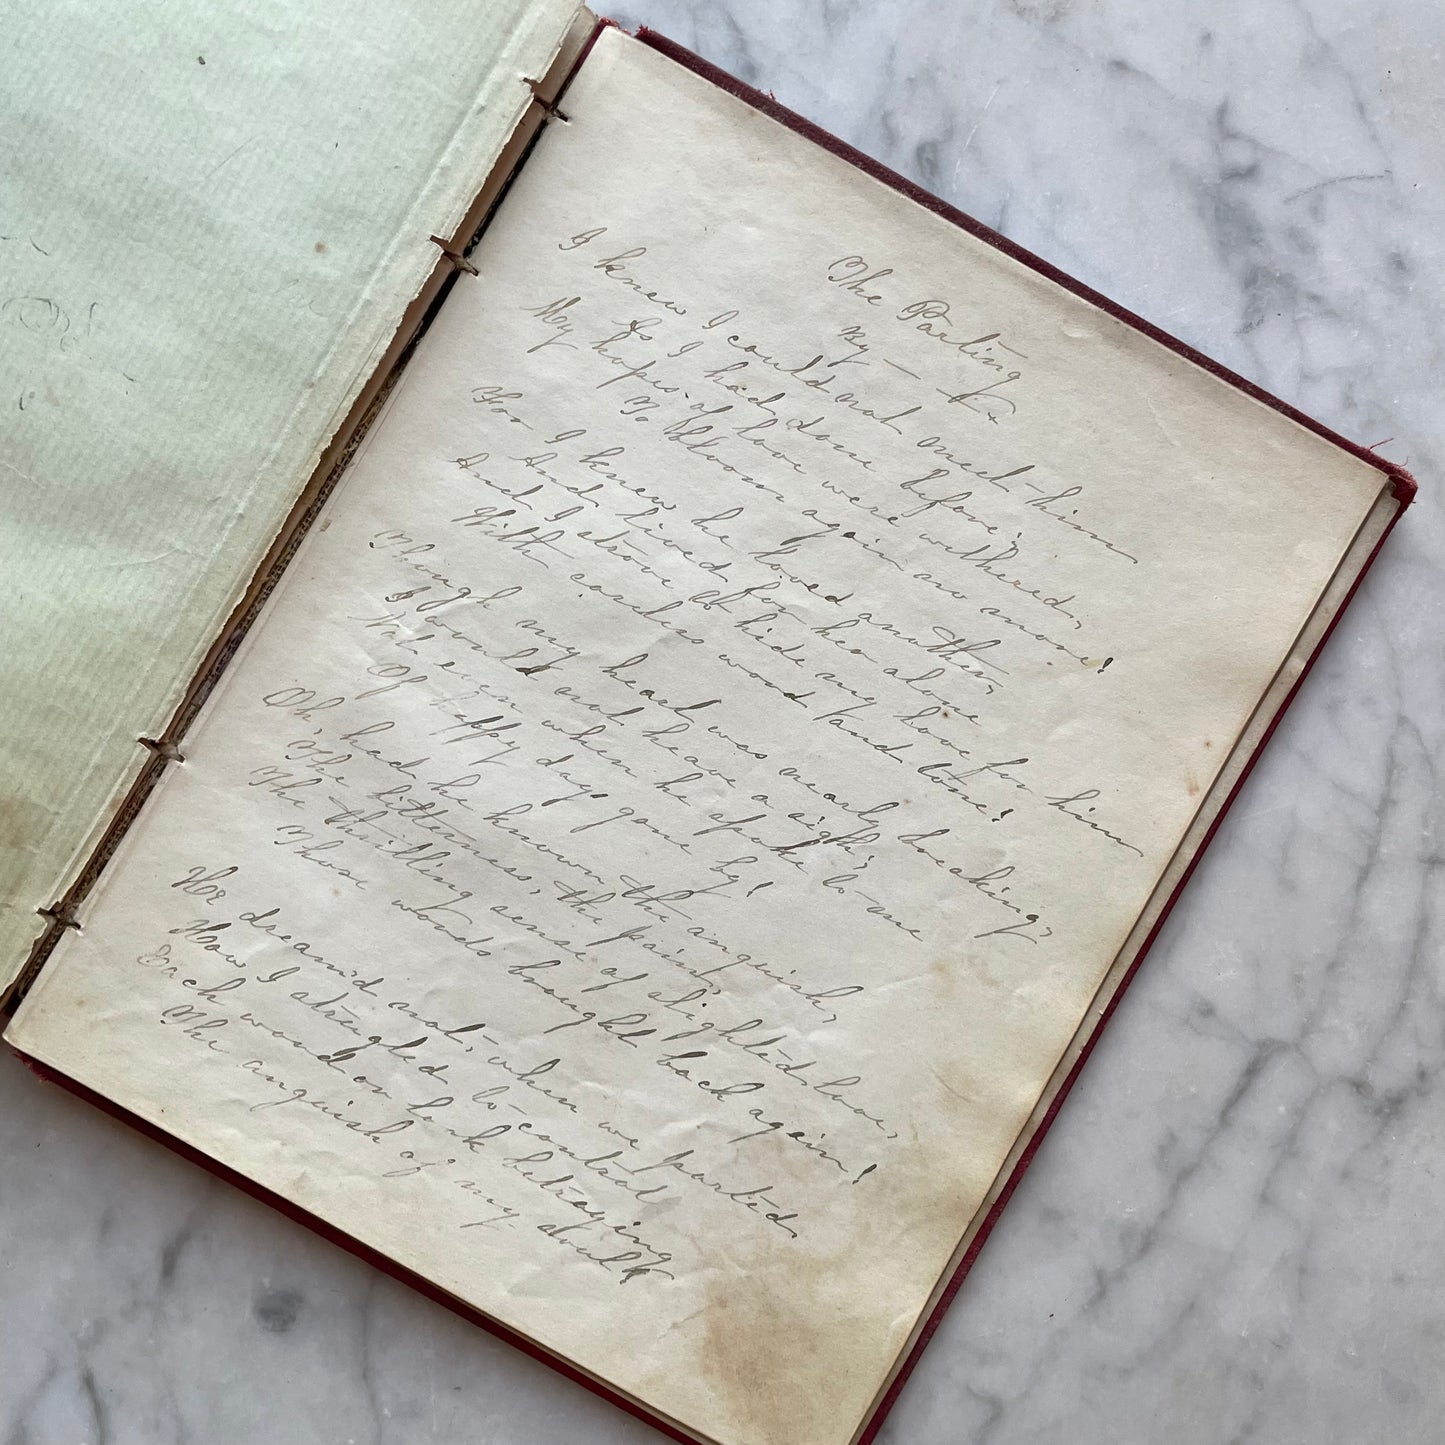 The Parting
By — —
I knew I could not meet him
As I had done before;
My hopes of love were withered,
To bloom again no more!
For I knew he loved another,
And lived for her alone
And I strove to hide my love for him
With careless word and tone!
Though my heart was nearly breaking,
I would not heave a sigh;
Not even when he spoke to me
Of happy days gone by!
Oh had he known the anguish,
The bitterness, the pain,
The thrilling sense of slighted love,
Those words brought back again!
He dream'd not, when we parted,
How I struggled to control
Each word or look betraying
The anguish of my soul!